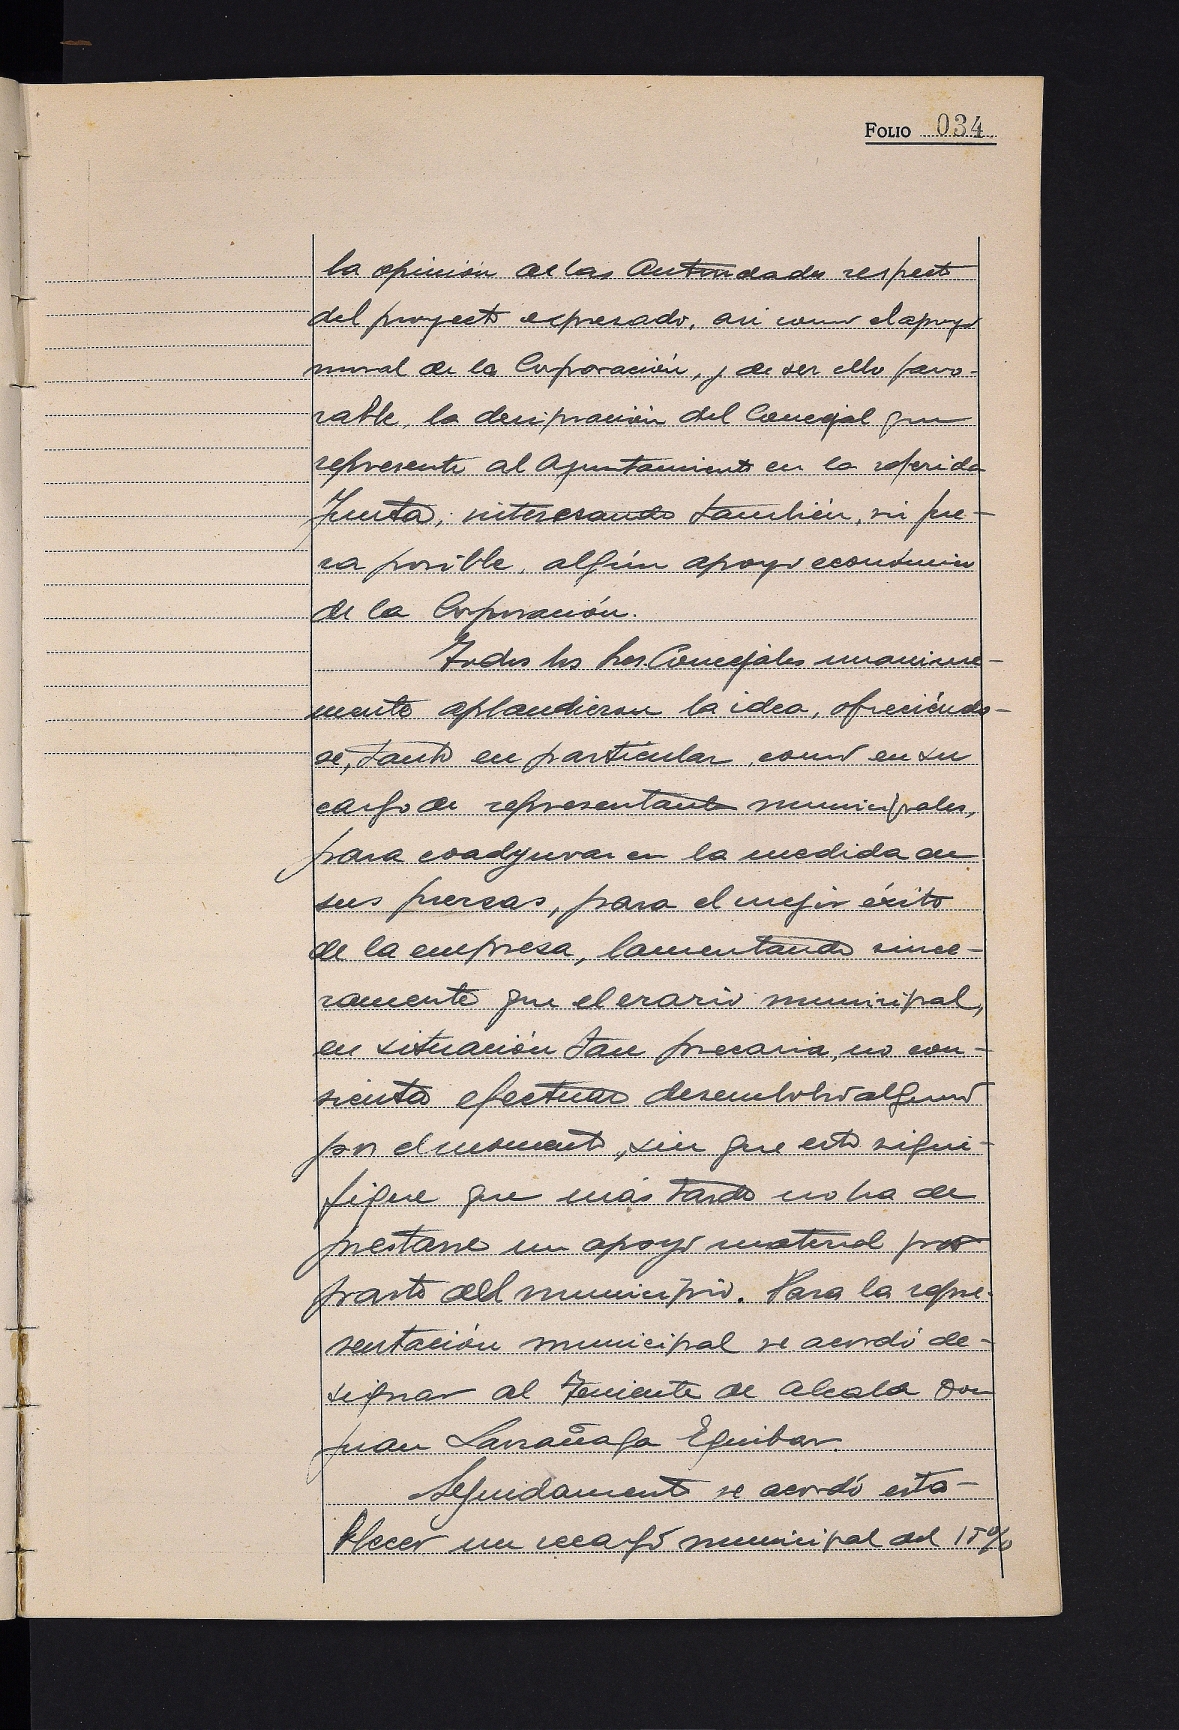 FOLIO 034
la opinión de las Autoridades respecto
del proyecto expresado, asi como el apoyo
moral de la Corporación, y de ser ello favo-
rable, la designación del Concejal que
represente al Ayuntamiento en la referida
Junta, interesando también, si fue-
ra posible, algún apoyo económico
de la Corporación.
Todos los Sres. Concejales unanime-
mente aplaudieron la idea, ofreciéndo-
se, tanto en particular, como en su
cargo de representante municipales,
para coadyuvar en la medida de
sus fuerzas, para el mejor éxito
de la empresa, lamentando since-
ramente que el erario municipal,
en situación tan precaria, no con-
sienta efectuar desembolso alguno
por el momento, sin que esto signi-
fique que más tarde no ha de
prestarse un apoyo material por
parte del municipio. Para la repre-
sentación municipal se acordó de-
signar al Teniente de Alcalde Don
Juan Larrañaga Eguibar.
Seguidamente se acordó esta-
blecer un recargo municipal del 15%